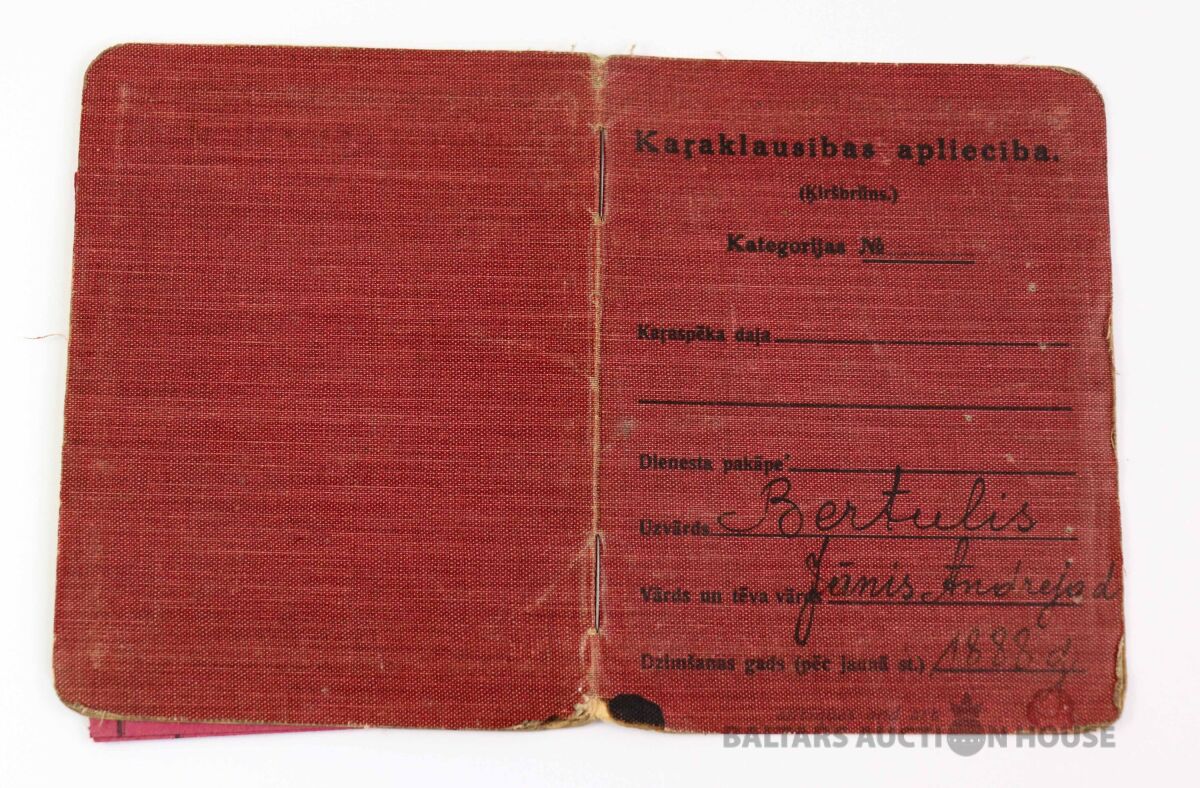 Kaŗaklausības apliecība.
(Ķiršbrūns.)
Kategorijas №
Kaŗaspēka daļa
Dienesta pakāpe
Uzvārds Bertulis
Vārds un tēva vārds Jānis Andreja d
Dzimšanas gads (pēc jaunā st.) 1888 g
BALTARS AUCTION HOUSE